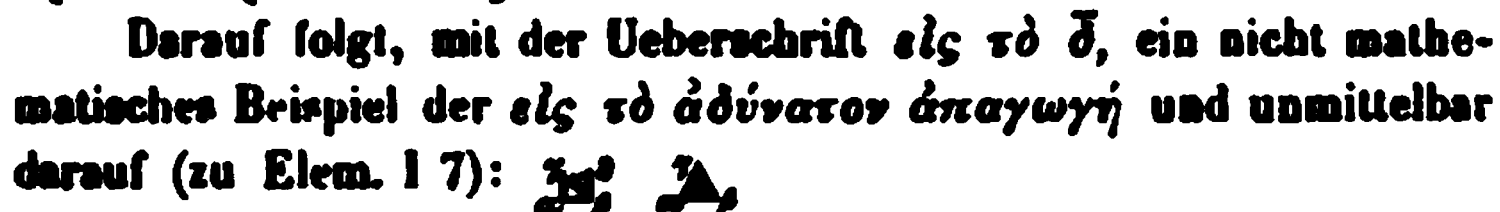 Darauf folgt, mit der Ueberschrift εἰς τὸ δ̄, ein nicht mathe-
matisches Beispiel der εἰς τὸ ἀδύνατον ἀπαγωγή und unmittelbar
darauf (zu Elem. I 7):